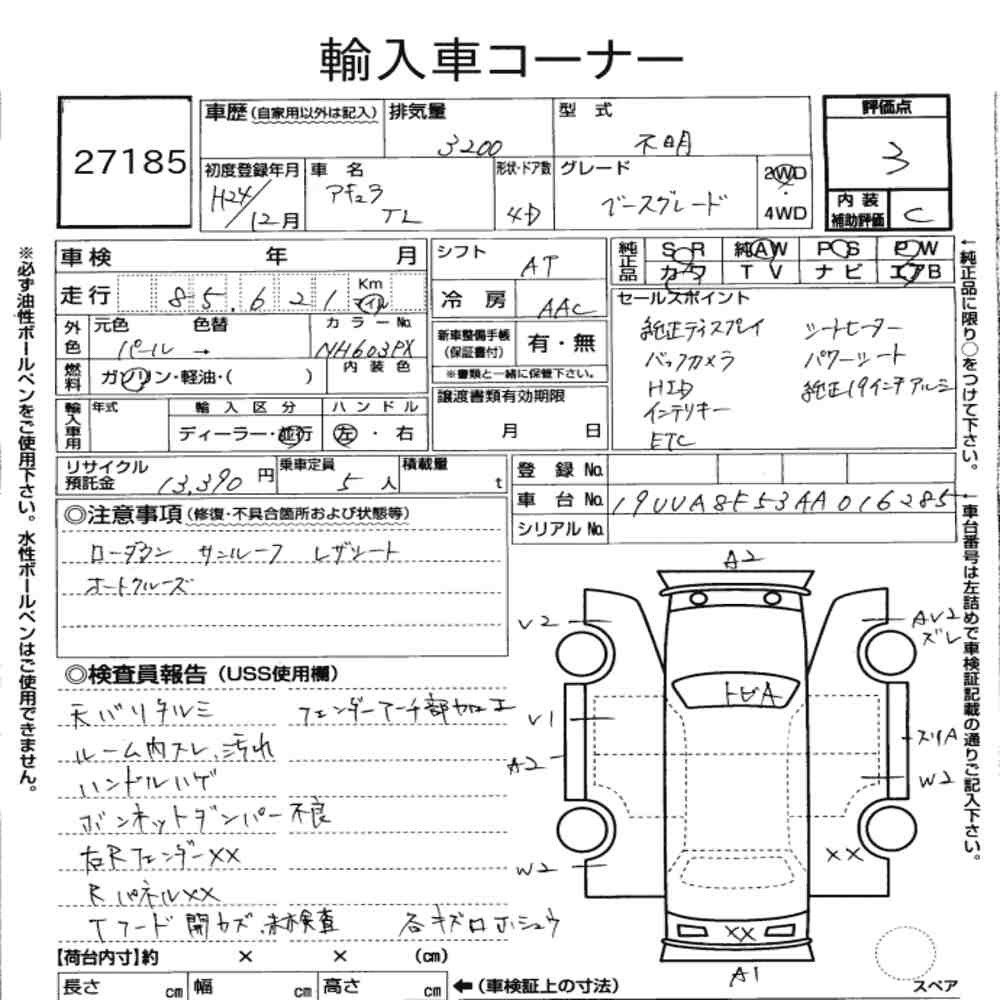 輸入車コーナー
27185
車歴(自家用以外は記入) 排気量 3200 型式 不明
初度登録年月 H24/12月 車名 アキュラ TL 形状・ドア数 4D グレード ベースグレード 2WD 4WD
評価点 3
内装補助評価 C
車検 年 月
走行 85,621 Km マイル
外色 元色 パール → 色替 カラーNo. NH603PX
燃料 ガソリン・軽油・( ) 内装色
輸入車用 年式 輸入区分 ディーラー・並行 ハンドル 左・右
リサイクル預託金 13,390円 乗車定員 5人 積載量 t
シフト AT
冷房 AAC
新車整備手帳(保証書付) 有・無
※書類と一緒に保管下さい。
譲渡書類有効期限 月 日
純正品 SR 純AW PS PW
カワ TV ナビ エアB
セールスポイント
純正ディスプレイ シートヒーター
バックカメラ パワーシート
HID 純正19インチアルミ
インテリキー
ETC
登録No.
車台No. 19UUA8F53AA016285
シリアルNo.
◎注意事項(修復・不具合箇所および状態等)
ローダウン サンルーフ レザシート
オートクルーズ
◎検査員報告(USS使用欄)
天バリタルミ フェンダーアーチ部加工
ルーム内スレ、汚れ
ハンドルハゲ
ボンネットダンパー不良
右Rフェンダー××
Rパネル××
Tフード開カズ、未検査 各キズロホシュウ
A2
V2
AV2
ズレ
トビA
V1
A2
スリA
W2
W2
××
××
A1
スペア
【荷台内寸】約 × × (cm)
長さ cm 幅 cm 高さ cm ←(車検証上の寸法)
※必ず油性ボールペンをご使用下さい。水性ボールペンはご使用できません。
←純正品に限り○をつけて下さい。
←車台番号は左詰めで車検証記載の通りご記入下さい。